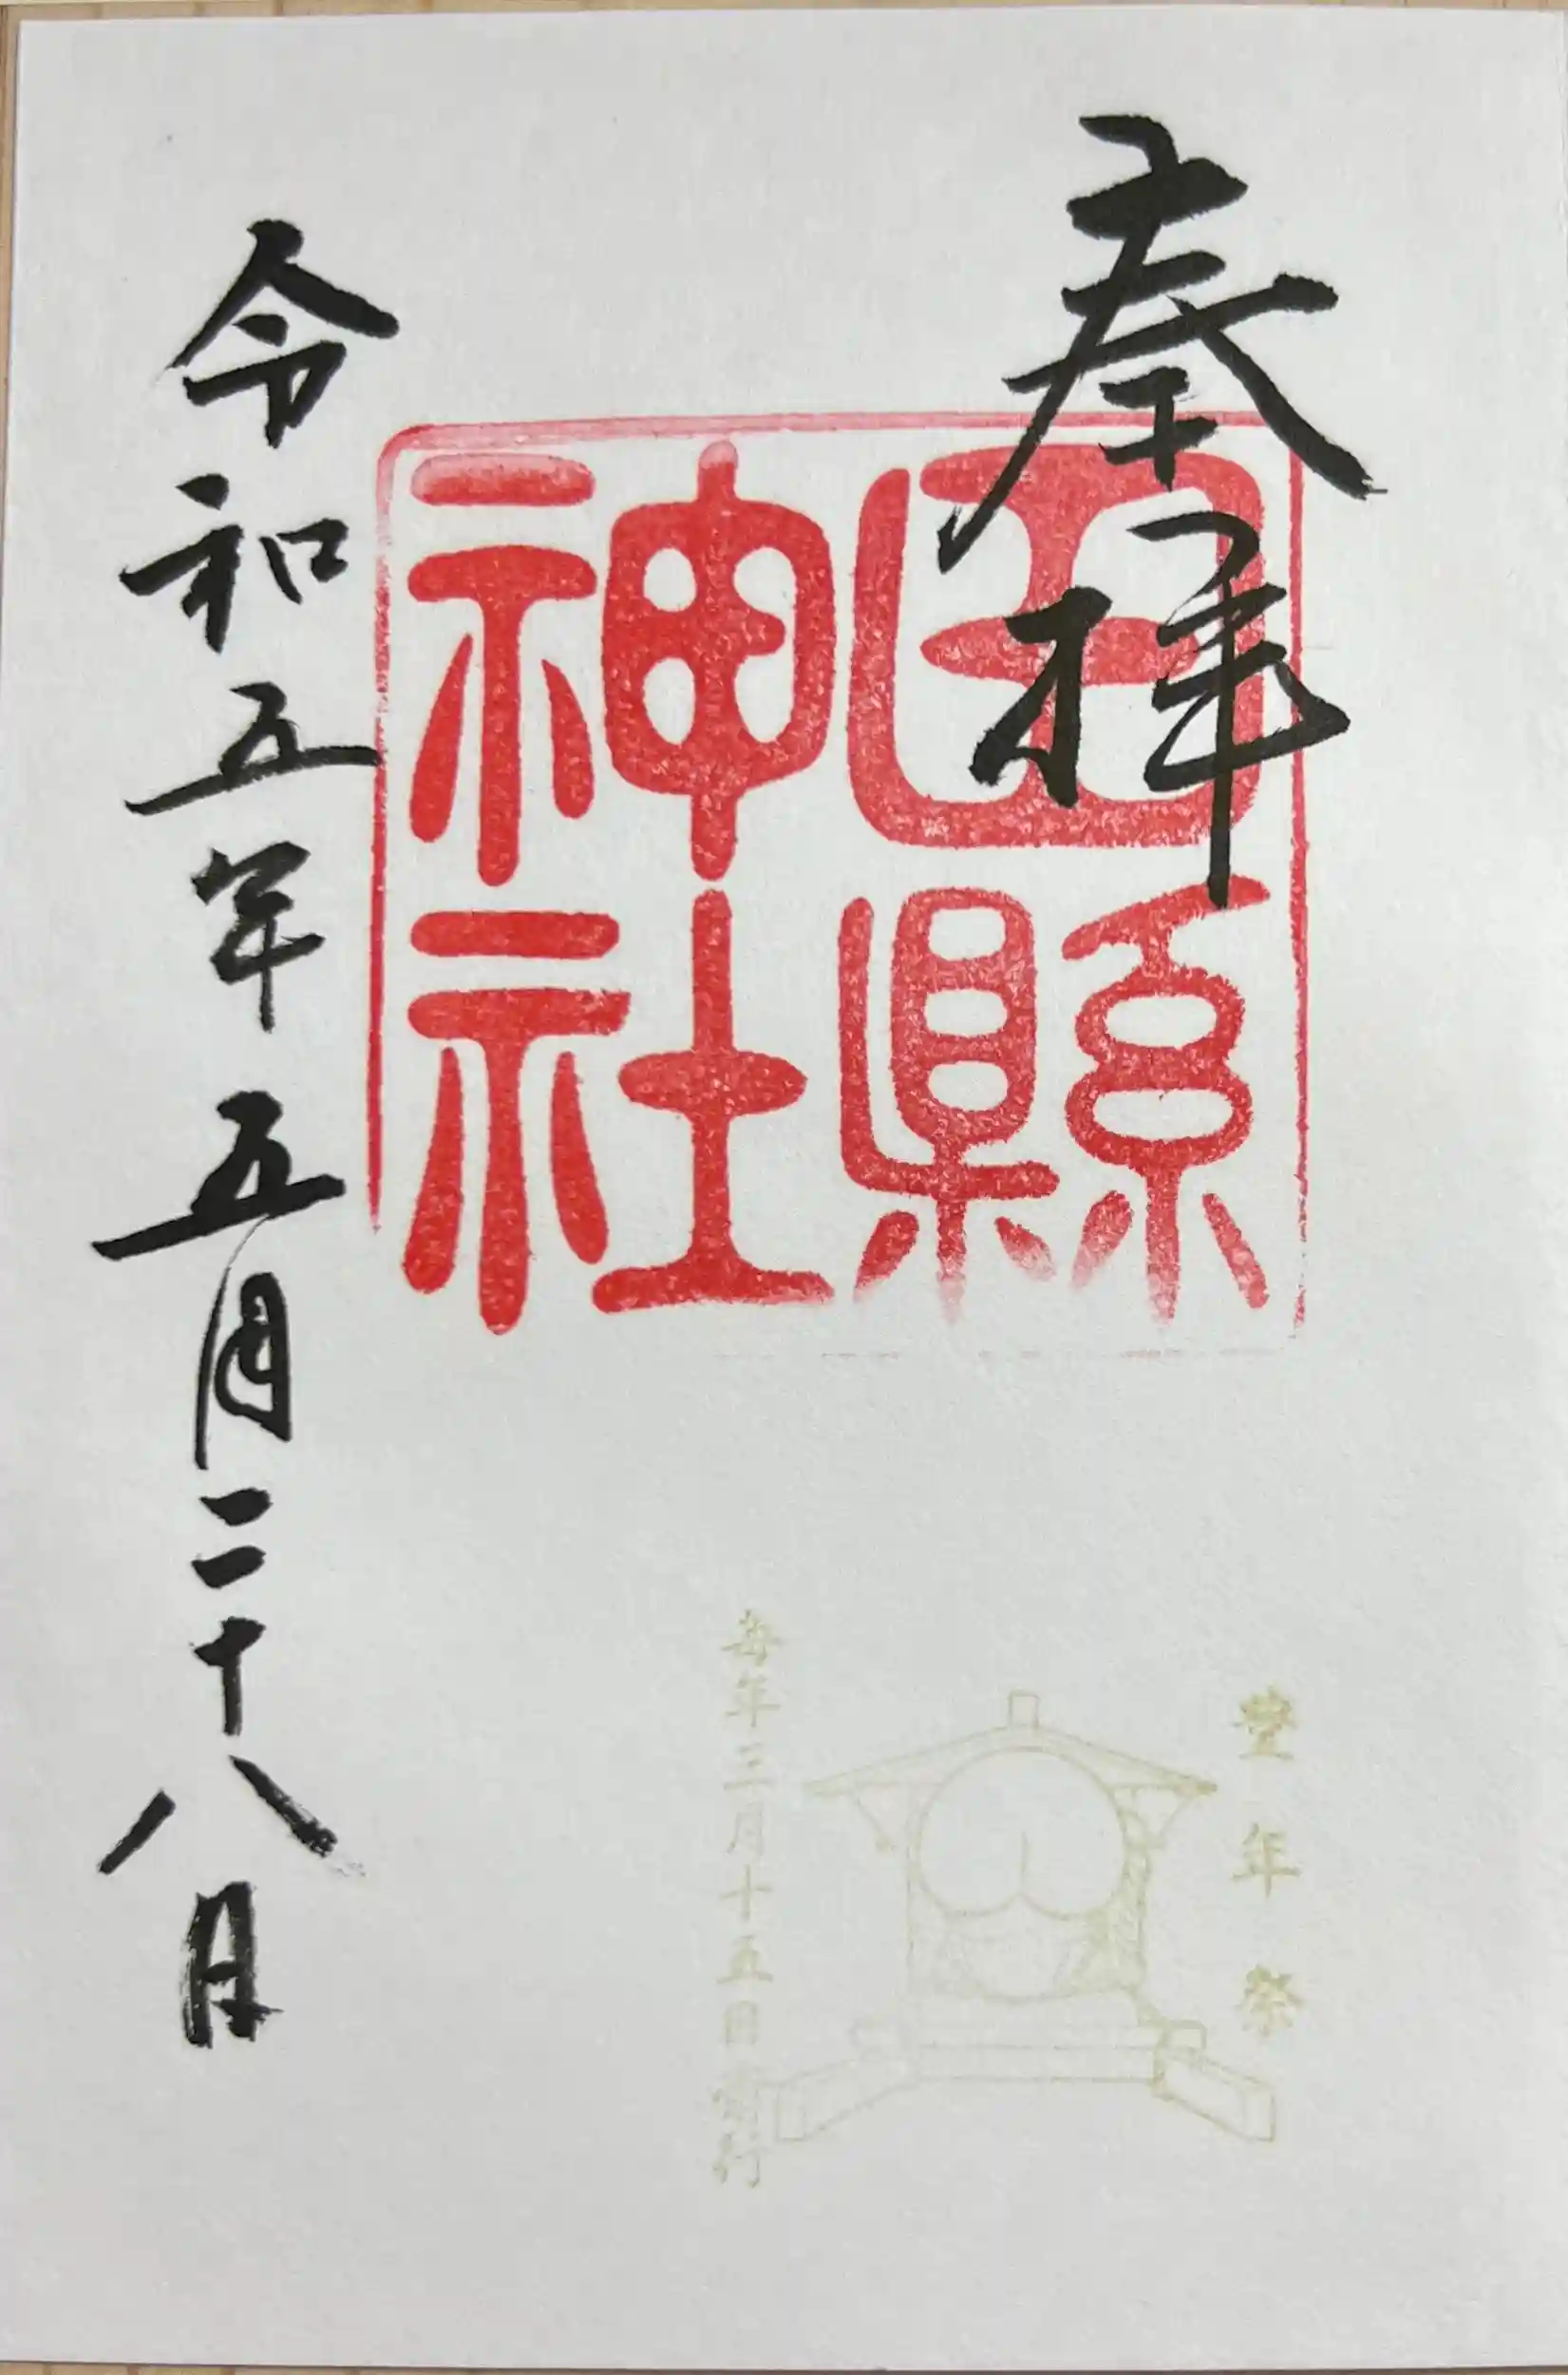 奉拝
田縣
神社
豊年祭
毎年三月十五日斎行
令和五年五月二十八日